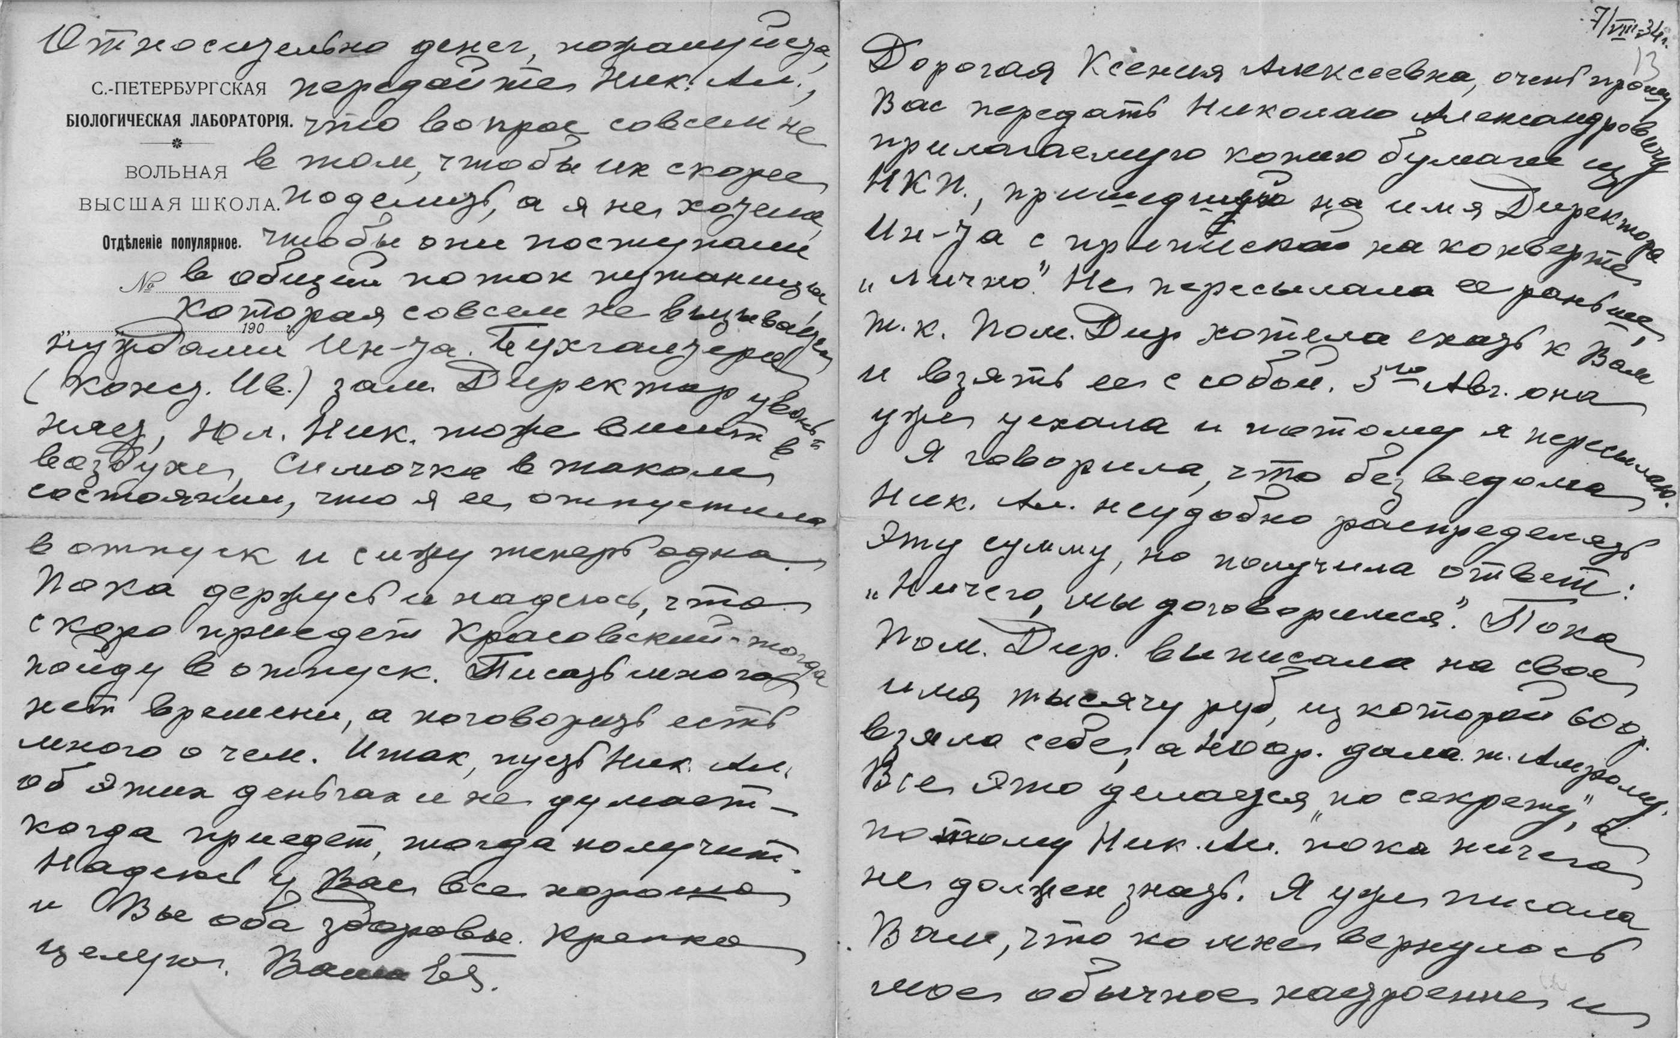 7/VIII-34г.
13
Дорогая Ксения Алексеевна, очень прошу
Вас передать Николаю Александровичу
прилагаемую копию бумаги из
НКП., пришедшую на имя Директора
Ин-та с припиской на конверте
„лично". Не пересылала ее раньше,
т.к. Пом. Дир. хотела ехать к Вам
и взять ее с собой. 5го Авг. она
уже уехала и потому я пересылаю.
Я говорила, что без ведома
Ник. Ал. неудобно распределять
эту сумму, но получила ответ:
„Ничего, мы договоримся". Пока
Пом. Дир. выписала на свое
имя тысячу руб, из которой 600р.
взяла себе, а 400р. дала т.
Все это делается „по секрету", а
потому Ник. Ал. „пока ничего
не должен знать. Я уже писала
Вам, что ко мне вернулось
мое обычное настроение и
Относительно денег, пожалуйста,
С.-ПЕТЕРБУРГСКАЯ
БІОЛОГИЧЕСКАЯ ЛАБОРАТОРІЯ.
ВОЛЬНАЯ
ВЫСШАЯ ШКОЛА.
Отдѣленіе популярное.
№
190
передайте Ник. Ал.,
что вопрос совсем не
в том, чтобы их скорее
поделить, а я не хотела,
чтобы они поступали
в общий поток путаницы,
которая совсем не вызывается
нуждами Ин-та. Бухгалтера
(Конст. Ив.) зам. Директор уволь-
няет, Юл. Ник. тоже висит в
воздухе, Симочка в таком
состоянии, что я ее отпустила
в отпуск и сижу теперь одна.
Пока держусь и надеюсь, что
скоро приедет Красовский - тогда
пойду в отпуск. Писать много
нет времени, а поговорить есть
много о чем. Итак, пусть Ник. Ал.
об этих деньгах и не думает -
когда приедет, тогда получит.
Надеюсь у Вас все хорошо
и Вы оба здоровы. Крепко
целую. Ваша